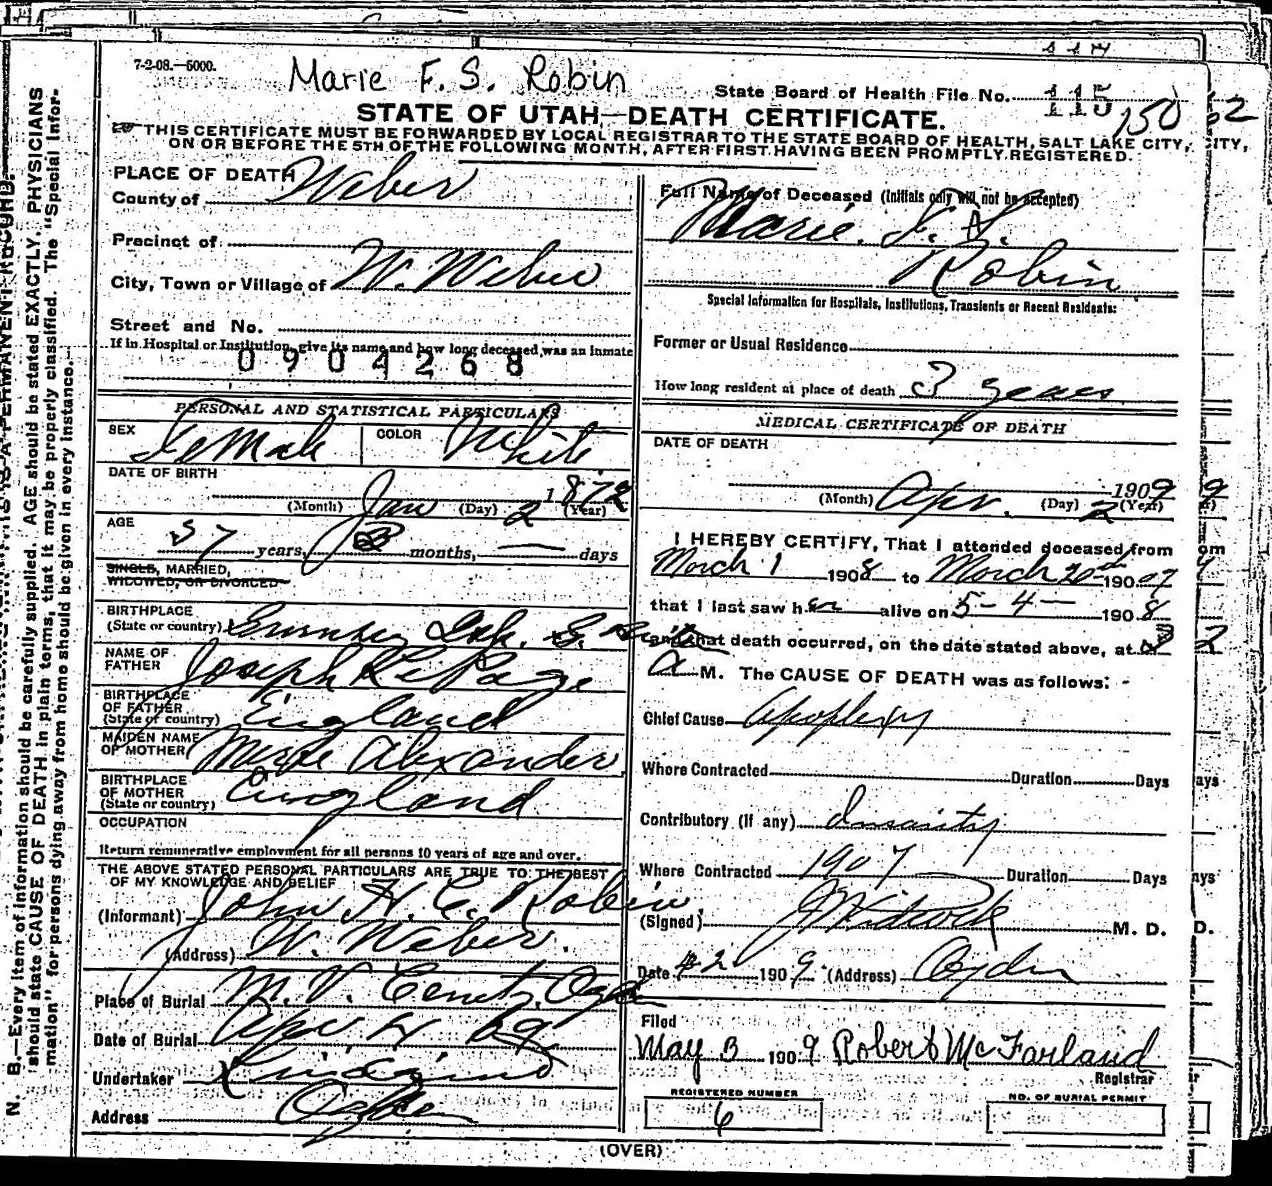 7-2-08.—5000.
Marie F. S. Robin
State Board of Health File No. 115
150
62
STATE OF UTAH—DEATH CERTIFICATE.
THIS CERTIFICATE MUST BE FORWARDED BY LOCAL REGISTRAR TO THE STATE BOARD OF HEALTH, SALT LAKE CITY,
CITY,
ON OR BEFORE THE 5TH OF THE FOLLOWING MONTH, AFTER FIRST HAVING BEEN PROMPTLY REGISTERED.
PLACE OF DEATH
County of Weber
Precinct of
City, Town or Village of W. Weber
Street and No.
If in Hospital or Institution, give its name and how long deceased was an inmate
0904268
PERSONAL AND STATISTICAL PARTICULARS
SEX Female COLOR White
DATE OF BIRTH
1872
(Month) Jan (Day) 2 (Year)
AGE
37 years, 3 months, — days
SINGLE, MARRIED,
WIDOWED, OR DIVORCED
BIRTHPLACE
(State or country) Isl. G.
NAME OF
FATHER Joseph Le Page
BIRTHPLACE
OF FATHER
(State or country) England
MAIDEN NAME
OF MOTHER Alexander
BIRTHPLACE
OF MOTHER
(State or country) England
OCCUPATION
Return remunerative employment for all persons 10 years of age and over.
THE ABOVE STATED PERSONAL PARTICULARS ARE TRUE TO THE BEST
OF MY KNOWLEDGE AND BELIEF
(Informant) John H. C. Robin
(Address) W. Weber.
Place of Burial M. V. Cemet. Ogd
Date of Burial Apr. 4 09
Undertaker
Address Ogden
Full Name of Deceased (Initials only will not be accepted)
Marie. F. S.
Robin
Special Information for Hospitals, Institutions, Transients or Recent Residents:
Former or Usual Residence
How long resident at place of death 3 years
MEDICAL CERTIFICATE OF DEATH
DATE OF DEATH
1909
(Month) Apr. (Day) 2 (Year)
I HEREBY CERTIFY, That I attended deceased from
March 1 1908 to March 20th 1909
that I last saw her alive on 5-4- 1908
and that death occurred, on the date stated above, at
a M. The CAUSE OF DEATH was as follows:
Chief Cause Apoplexy
Where Contracted Duration Days
Contributory (if any) Insanity
Where Contracted 1907 Duration Days
(Signed) M. D.
Date 4-2 1909 (Address) Ogden
Filed
May 3 1909 Robert McFarland
Registrar
REGISTERED NUMBER
6
NO. OF BURIAL PERMIT
(OVER)
N. B.—Every item of information should be carefully supplied. AGE should be stated EXACTLY. PHYSICIANS
should state CAUSE OF DEATH in plain terms, that it may be properly classified. The "Special Infor-
mation" for persons dying away from home should be given in every instance.